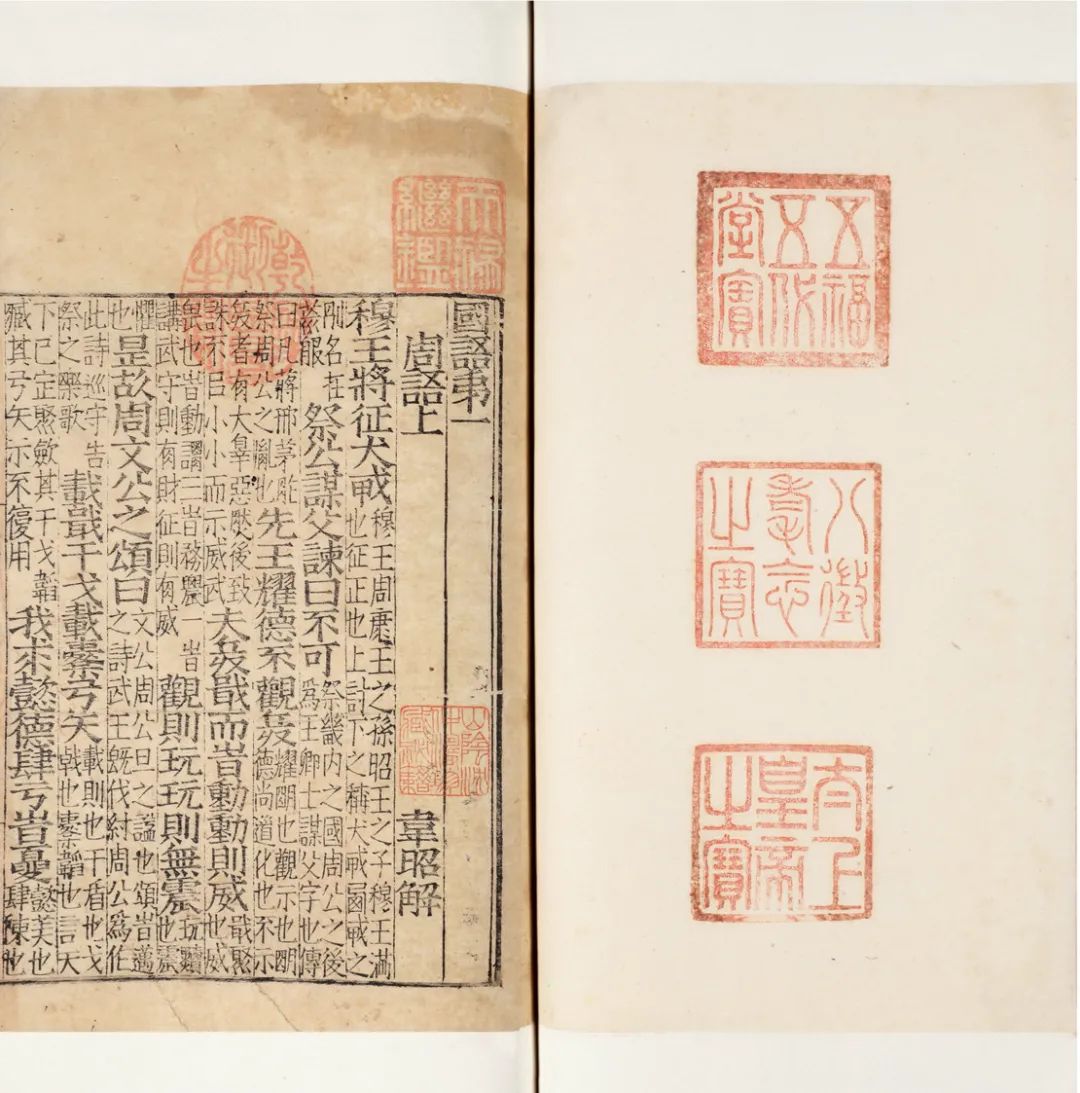 五福五代堂寶
八徵耄念之寶
太上皇帝之寶
天祿繼鑑
乾隆御覽之寶
國語弟一
周語上 韋昭解
穆王將征犬戎 穆王周康王之孫昭王之子穆王滿也征正也上討下之稱犬戎㢴戎之
別名在荒服 祭公謀父諫曰不可 祭畿内之國周公之後為王卿士謀父字也傳
曰凡蔣邢茅胙祭周公之胤也 先王耀德不觀兵 耀朙也觀示也朙德尚道化也不示
兵者有大辠惡然後致誅不㠯小小而示威武 夫兵戢而旹動動則威 戢聚也威
畏也旹動謂三旹務農一旹講武守則有財征則有威 觀則玩玩則無震 玩黷也震
懼也 是故周文公之頌曰 文公周公旦之諡也頌旹邁之詩武王既伐紂周公為作
此詩巡守告祭之樂歌 載戢干戈載櫜弓矢 載則也干盾也戈戟也櫜韜也言天
下已定聚斂其干戈韜藏其弓矢示不復用 我求懿德肆亏旹夏 懿美也肆陳也